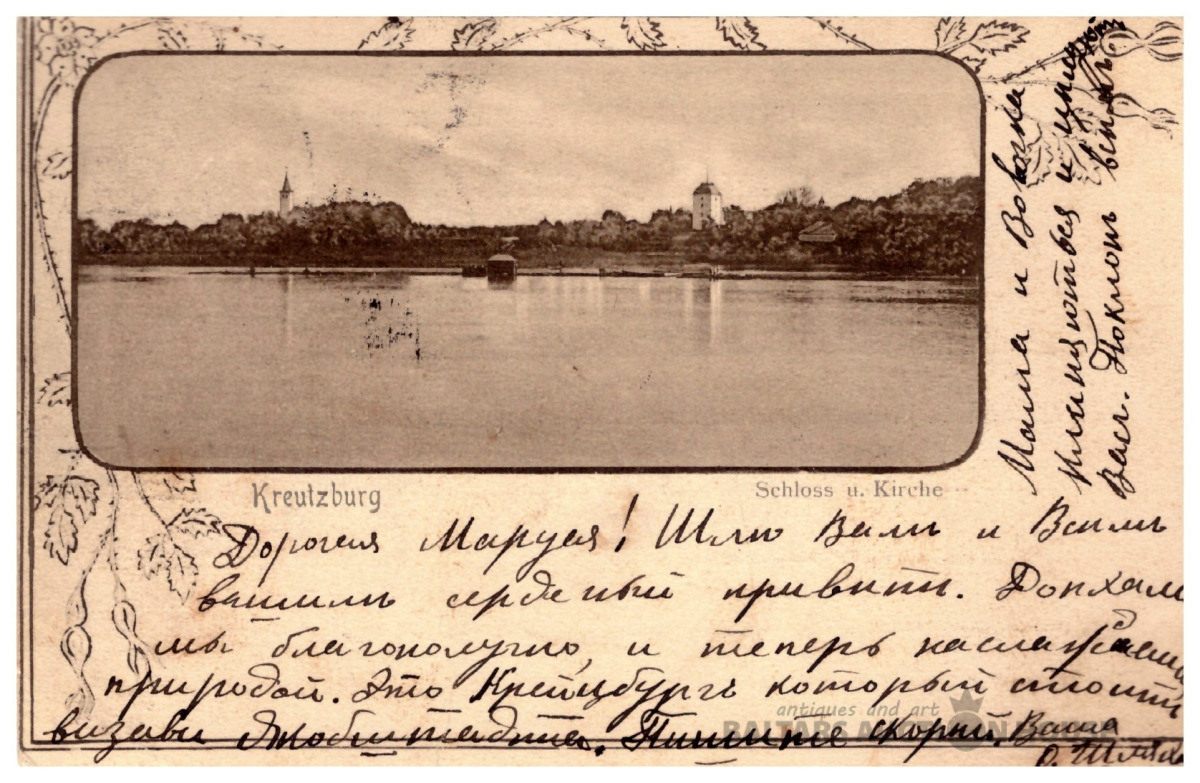 Kreutzburg
Schloss u. Kirche
Дорогая Маруся! Шлю Вамъ и Всѣмъ
вашимъ сердечный привѣтъ. Доѣхали
мы благополучно, и теперь наслаждаемся
природой. Это Крейцбургъ который стоитъ
визави Якобштадта. Пишите скорѣй. Ваша
О.
Мама и Вовочка
и цѣлуютъ
Васъ. Поклонъ всѣмъ
antiques and art